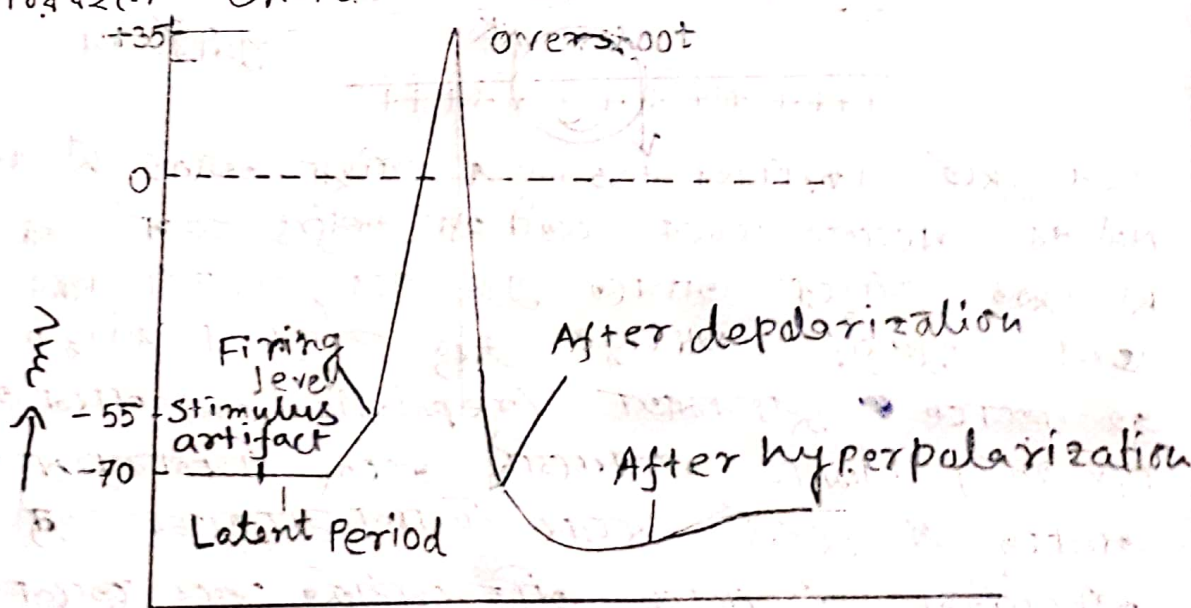 +35
overshoot
0
mv
Firing
level
-55
Stimulus
artifact
-70
Latent Period
After depolarization
After hyperpolarization